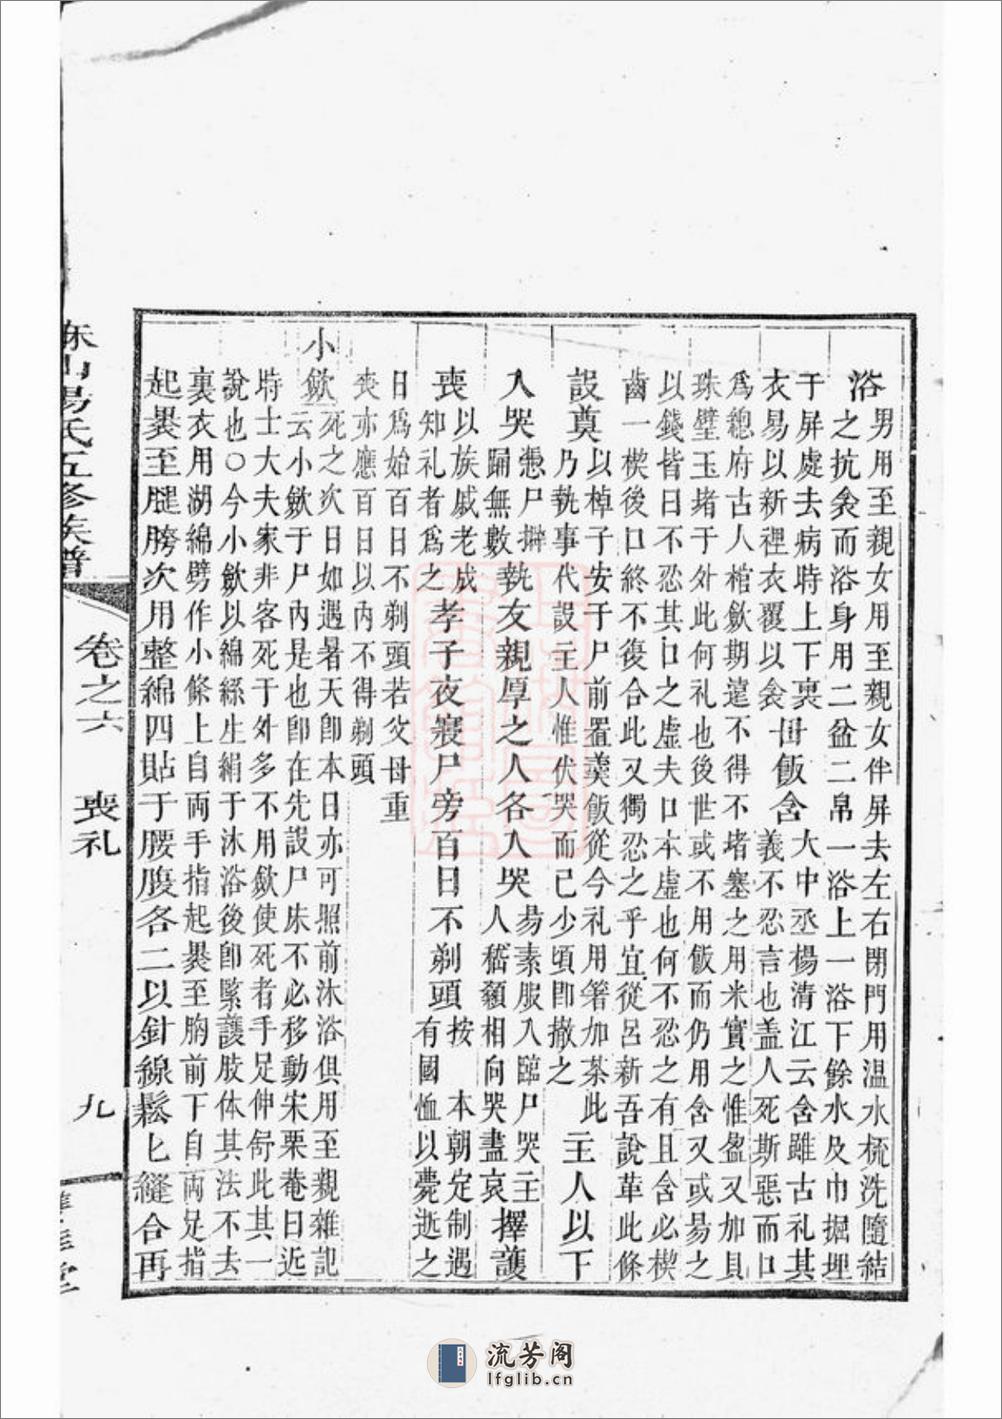 浴男用至親女用至親女伴屏去左右閉門用溫水梳洗隨結
之抗衾而浴身用二盆二帛一浴上一浴下餘水及巾掘埋
于屏處去病時上下裏
衣易以新裡衣覆以衾
飯含
大中丞楊清江云含雖古礼其
義不忍言也盖人死斯惡而口
爲總府古人棺歛期遠不得不堵塞之用米實之惟盈又加貝
珠璧玉堵于外此何礼也後世或不用飯而仍用含又或易之
以錢皆曰不忍其口之虛夫口本虛也何不忍之有且含必楔
齒一楔後口終不復合此又獨忍之乎宜從呂新吾說革此條
設奠
以棹子安于尸前置羮飯從今礼用箸加茶此
乃執事代設主人惟伏哭而已少頃即撤之
主人以下
入哭
慿尸擗
踊無數
執友親厚之人各入哭
易素服入臨尸哭主
人稽顙相向哭盡哀
擇護
喪
以族戚老成
知礼者爲之
孝子夜寢尸旁百日不剃頭
按 本朝定制遇
有國恤以薨逝之
日爲始百日不剃頭若父母重
喪亦應百日以內不得剃頭
小歛
死之次日如遇暑天即本日亦可照前沐浴俱用至親雜記
云小歛于尸內是也即在先設尸床不必移動宋栗菴曰近
時士大夫家非客死于外多不用歛使死者手足伸舒此其一
說也○今小歛以綿絲生絹于沐浴後即緊護肢体其法不去
裏衣用湖綿劈作小條上自両手指起褁至胸前下自両足指
起褁至腿胯次用整綿四貼于腰腹各二以針線鬆匕縫合再
山易氏五修族譜
卷之六
喪礼
九
堂
流芳阁
lfglib.cn